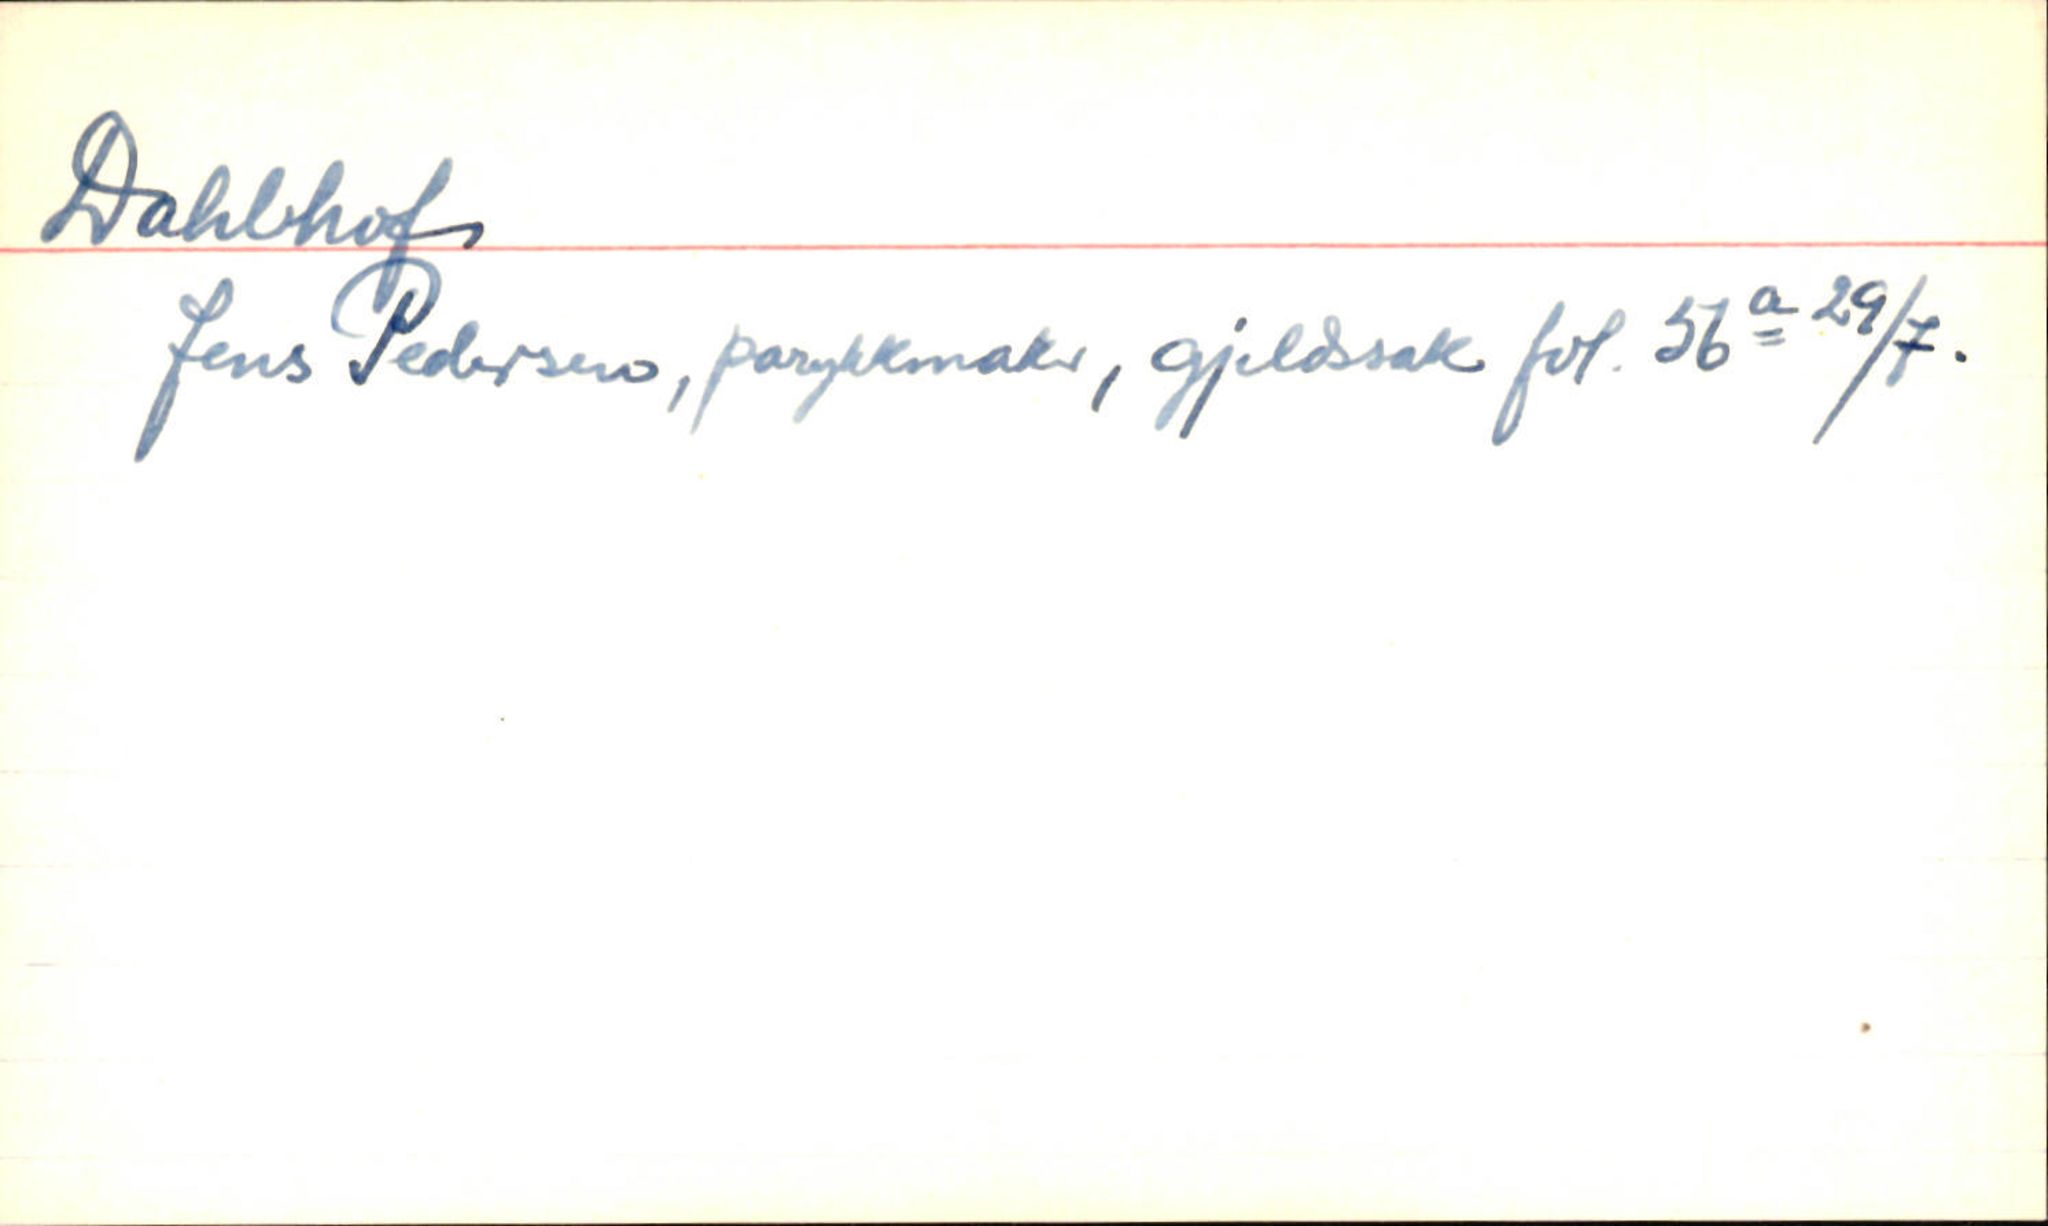 Dahlhof
Jens Pedersen, parykkmaker, gjeldssak fol. 56a 29/7.